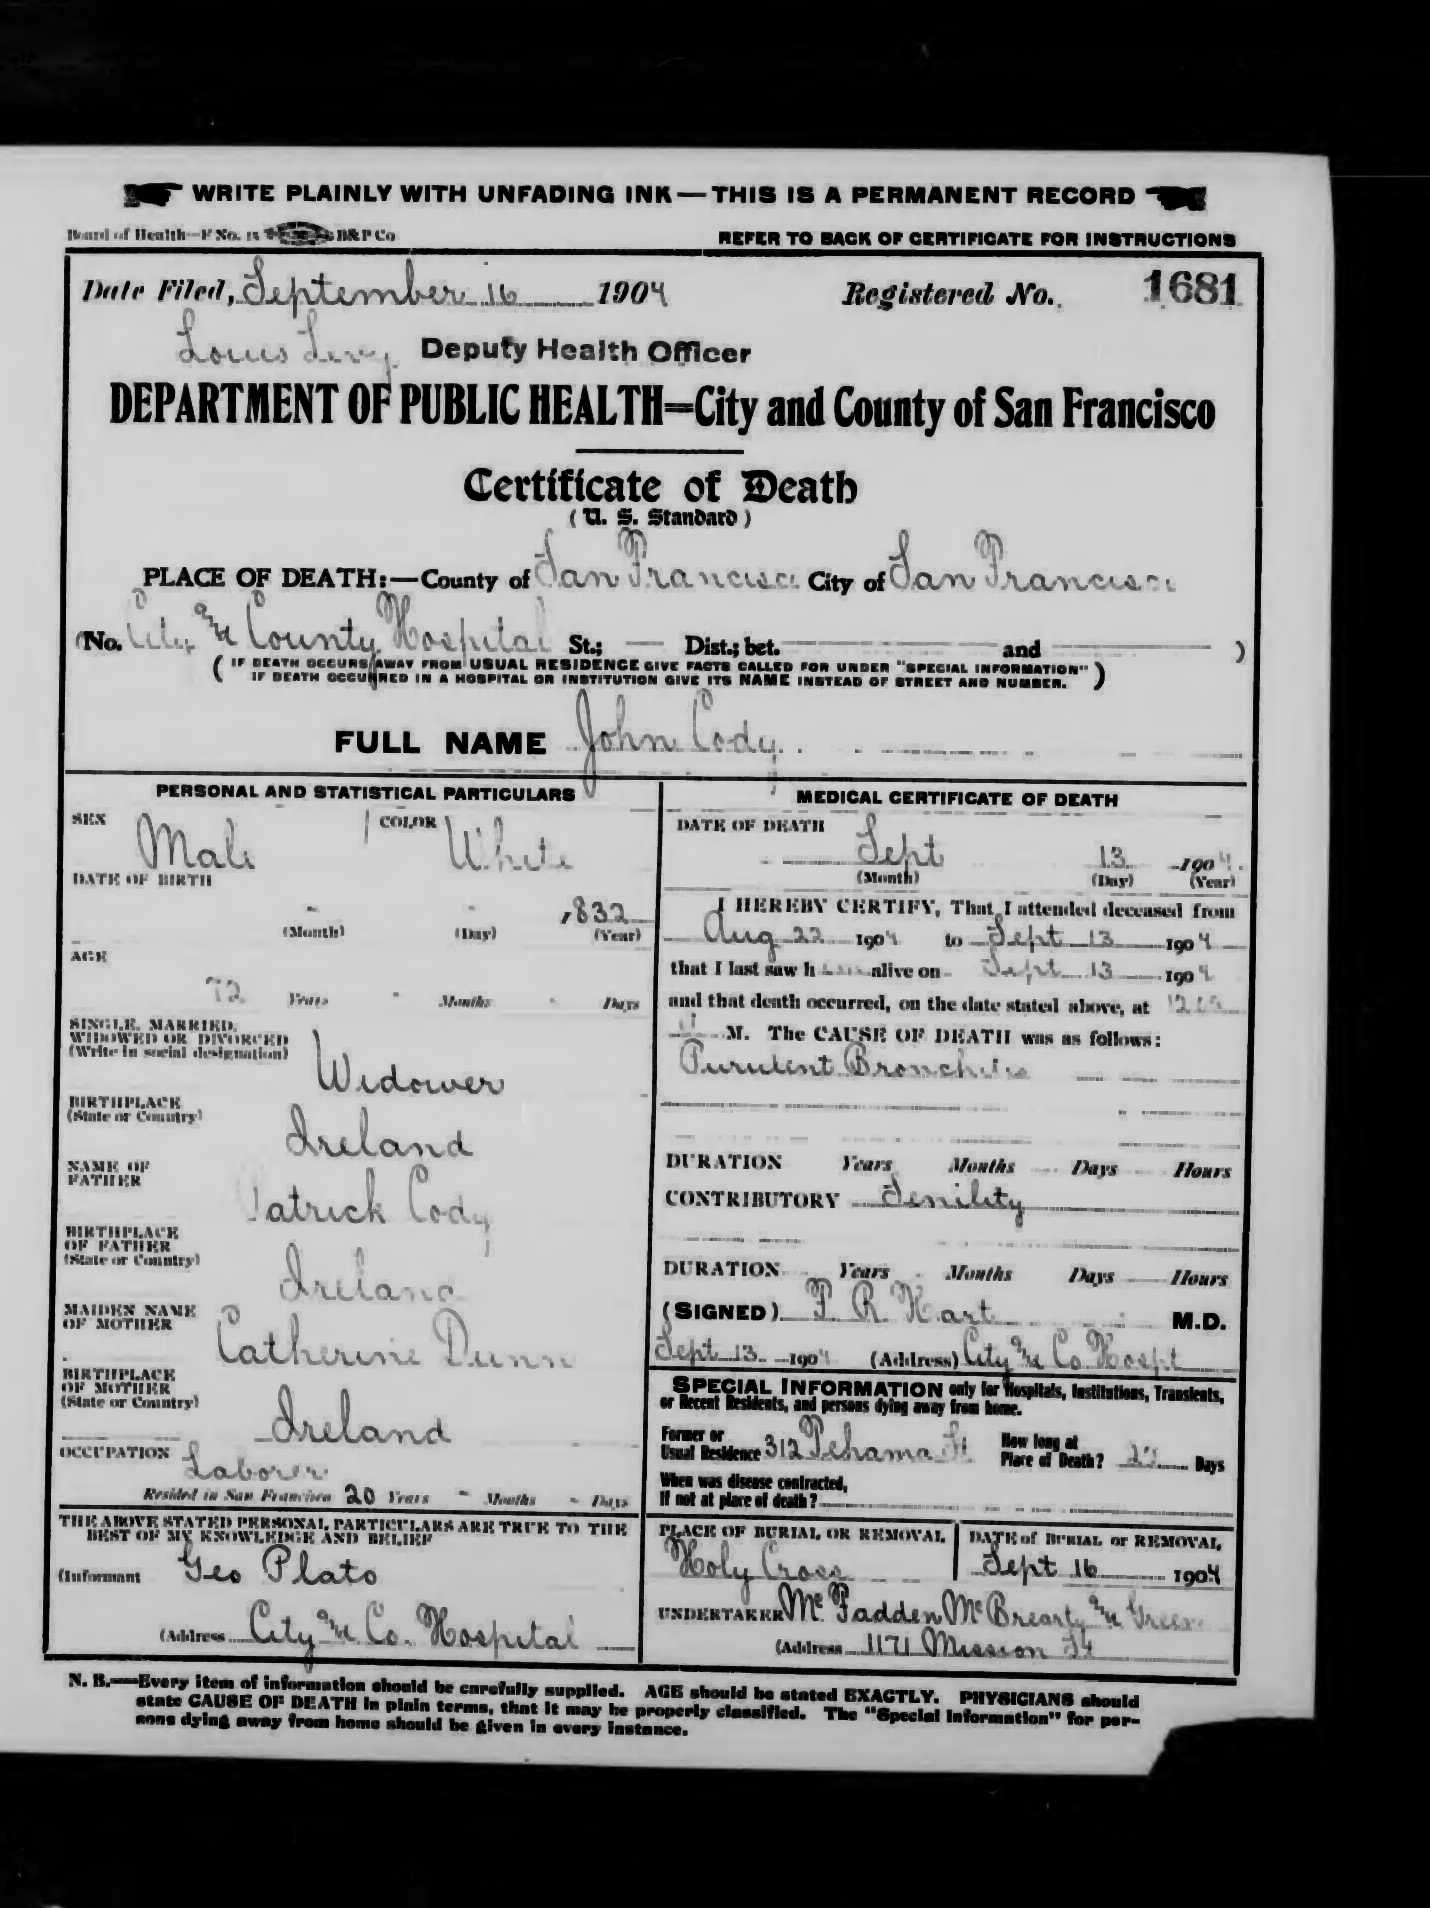 WRITE PLAINLY WITH UNFADING INK—THIS IS A PERMANENT RECORD
Board of Health—F No. 15 B&P Co
REFER TO BACK OF CERTIFICATE FOR INSTRUCTIONS
Date Filed, September 16 1904 Registered No. 1681
Louis Levy Deputy Health Officer
DEPARTMENT OF PUBLIC HEALTH=City and County of San Francisco
Certificate of Death
(U. S. Standard)
PLACE OF DEATH:—County of San Francisco City of San Francisco
(No. City and County Hospital St.; — Dist.; bet. and )
(IF DEATH OCCURS AWAY FROM USUAL RESIDENCE GIVE FACTS CALLED FOR UNDER "SPECIAL INFORMATION"
IF DEATH OCCURRED IN A HOSPITAL OR INSTITUTION GIVE ITS NAME INSTEAD OF STREET AND NUMBER.)
FULL NAME John Cody
PERSONAL AND STATISTICAL PARTICULARS
SEX Male COLOR White
DATE OF BIRTH
- - 1832
(Month) (Day) (Year)
AGE
72 Years - Months - Days
SINGLE, MARRIED,
WIDOWED OR DIVORCED
(Write in social designation)
Widower
BIRTHPLACE
(State or Country)
Ireland
NAME OF
FATHER
Patrick Cody
BIRTHPLACE
OF FATHER
(State or Country)
Ireland
MAIDEN NAME
OF MOTHER
Catherine Dunn
BIRTHPLACE
OF MOTHER
(State or Country)
Ireland
OCCUPATION Laborer
Resided in San Francisco 20 Years - Months - Days
THE ABOVE STATED PERSONAL PARTICULARS ARE TRUE TO THE
BEST OF MY KNOWLEDGE AND BELIEF
(Informant Geo Plato
(Address City and Co. Hospital
MEDICAL CERTIFICATE OF DEATH
DATE OF DEATH
Sept 13 1904
(Month) (Day) (Year)
I HEREBY CERTIFY, That I attended deceased from
Aug 22 1904 to Sept 13 1904
that I last saw h alive on Sept 13 1904
and that death occurred, on the date stated above, at
M. The CAUSE OF DEATH was as follows:
Purulent Bronchitis
DURATION Years Months Days Hours
CONTRIBUTORY Senility
DURATION Years Months Days Hours
(SIGNED) F. R. Hart M.D.
Sept 13 1904 (Address) City and Co Hospt
SPECIAL INFORMATION only for Hospitals, Institutions, Transients,
or Recent Residents, and persons dying away from home.
Former or
Usual Residence 312 Tehama St
How long at
Place of Death? Days
When was disease contracted,
If not at place of death?
PLACE OF BURIAL OR REMOVAL
Holy Cross
DATE of BURIAL or REMOVAL
Sept 16 1904
UNDERTAKER McFadden McBrearty and Green
(Address 1171 Mission St
N. B.—Every item of information should be carefully supplied. AGE should be stated EXACTLY. PHYSICIANS should
state CAUSE OF DEATH in plain terms, that it may be properly classified. The "Special Information" for per-
sons dying away from home should be given in every instance.